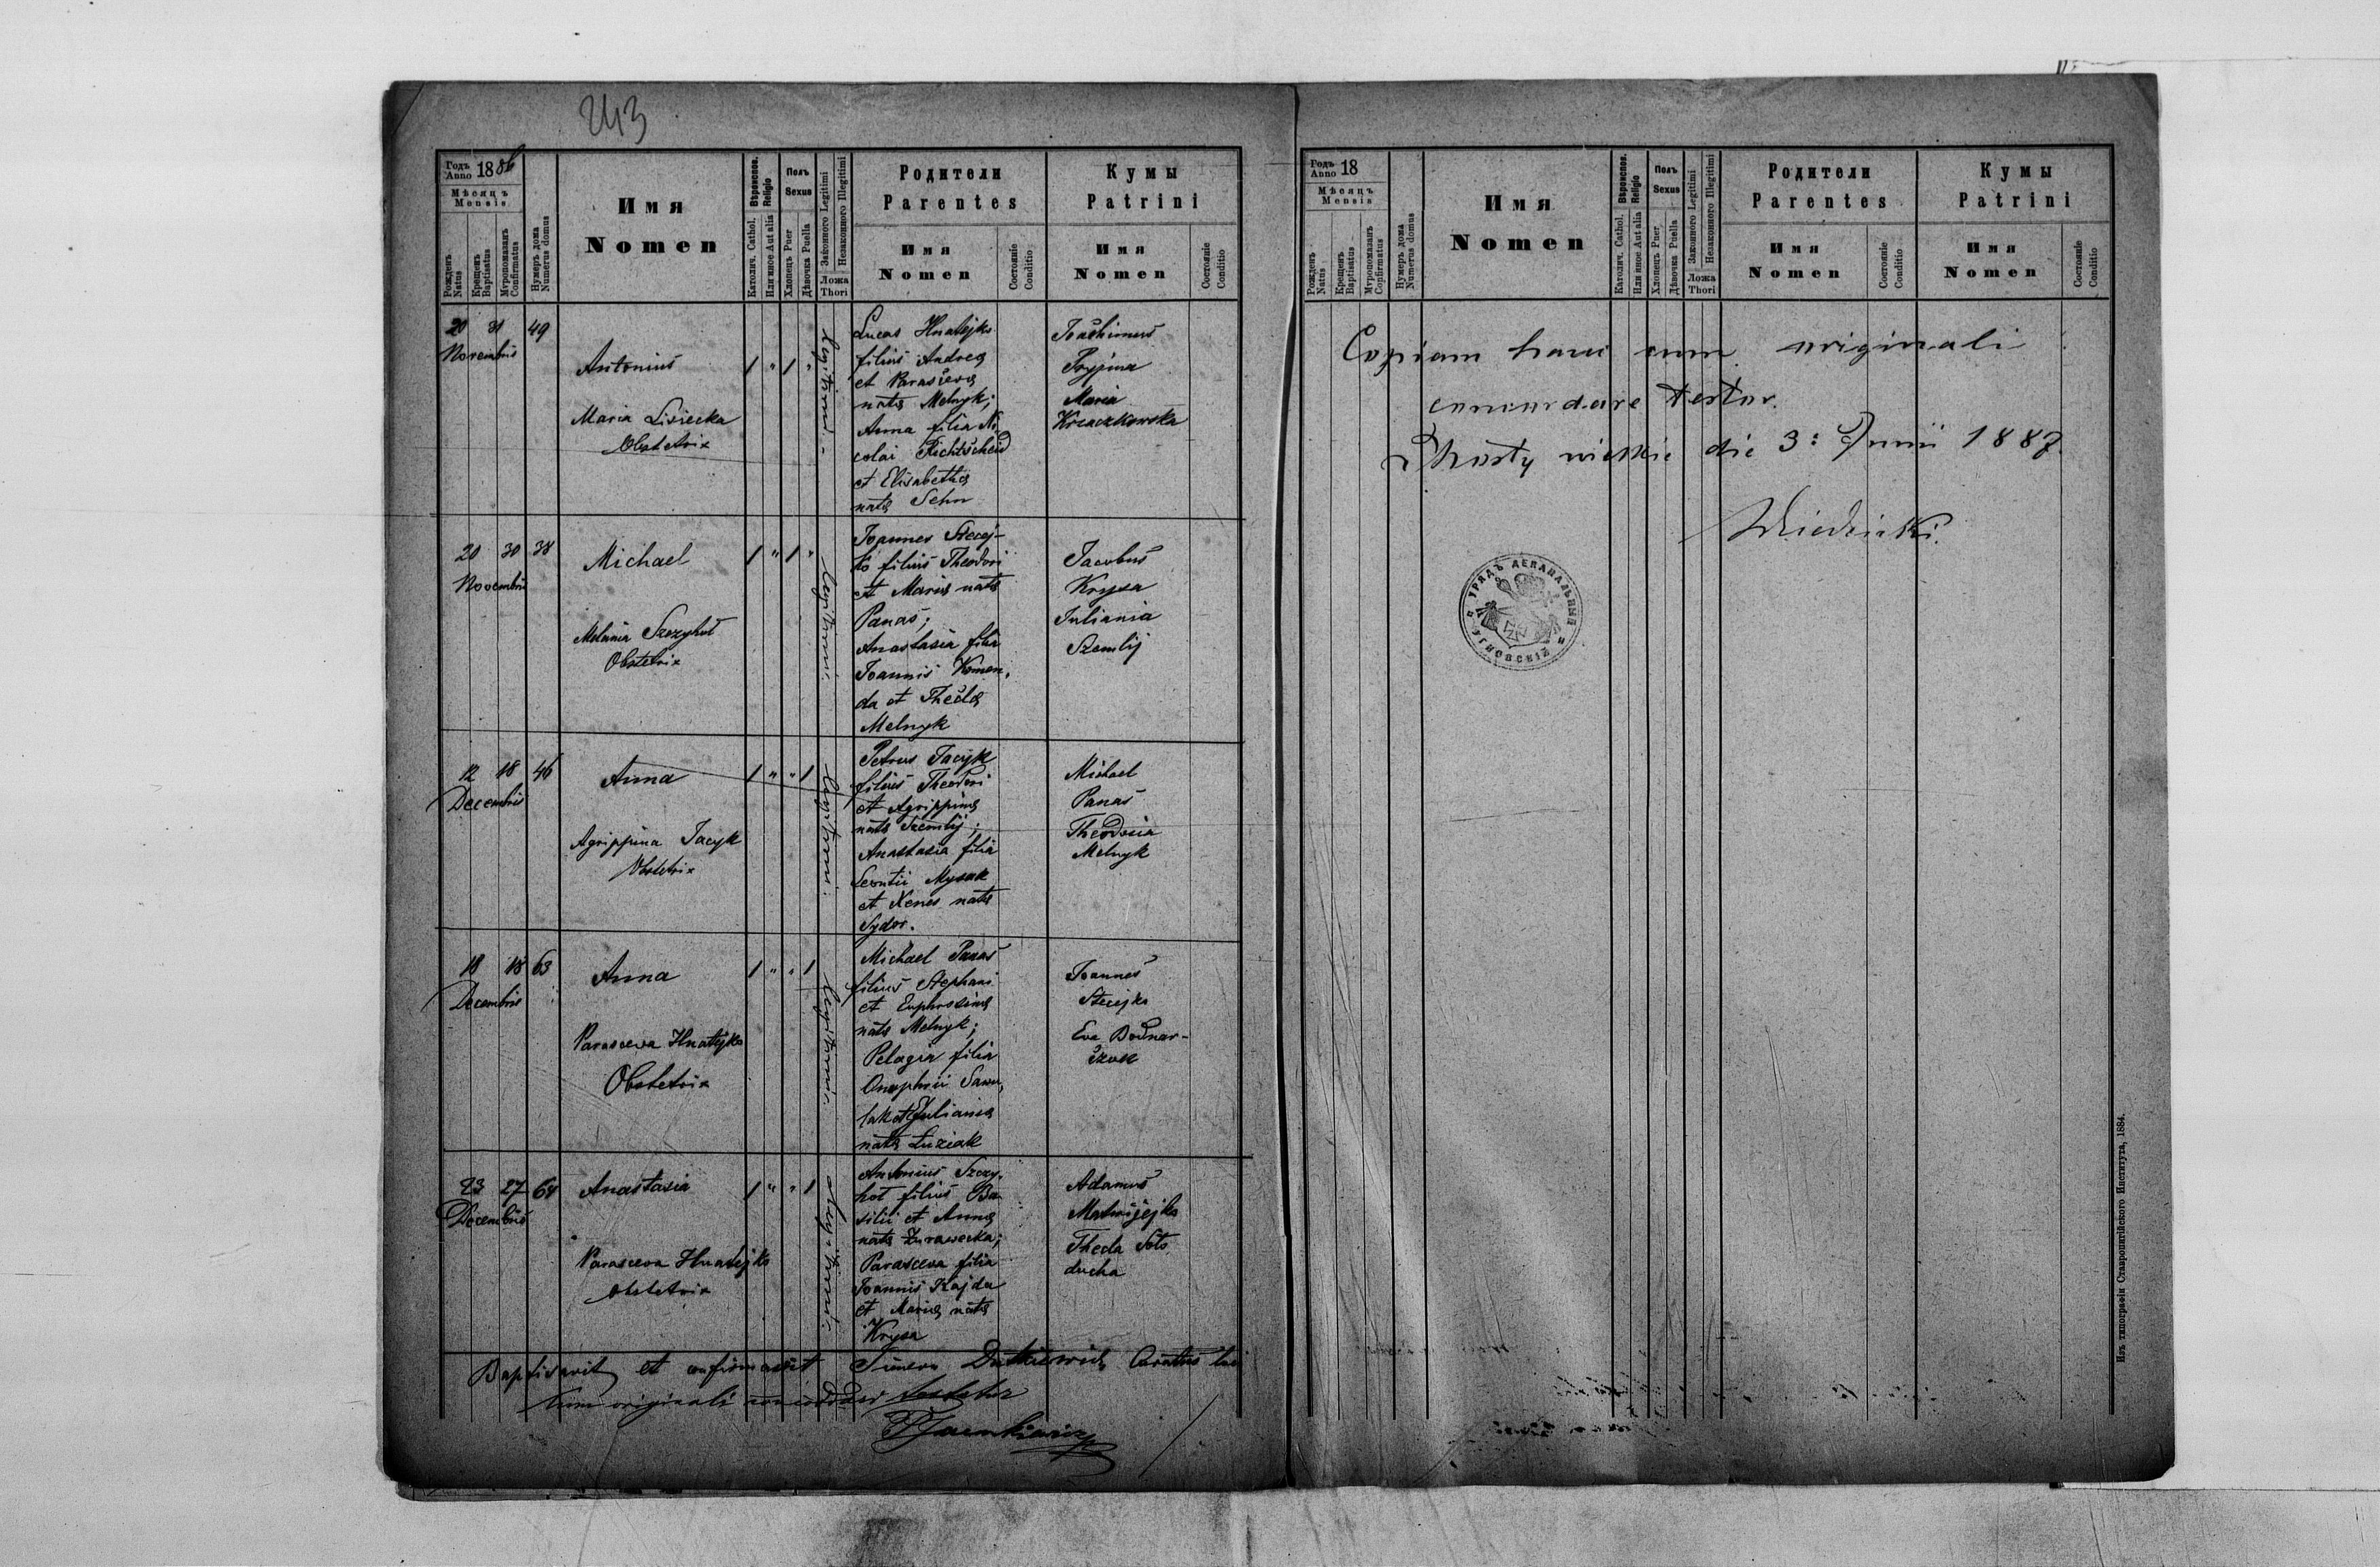 243
Годъ Anno 1886
Мѣсяцъ
Mensis
Рожденъ
Natus
Крещенъ
Baptisatus
Мѵропомазанъ
Confirmatus
Нумеръ дома
Numerus domus
Имя
Nomen
Вѣроиспов.
Religio
Католич. Cathol.
Или иное Aut alia
Полъ
Sexus
Хлопецъ Puer
Дѣвочка Puella
Законного Legitimi
Незаконного Illegitimi
Ложа
Thori
Родители
Parentes
Имя
Nomen
Состояніе
Conditio
Кумы
Patrini
Имя
Nomen
Состояніе
Conditio
20 31 49
Novembris
Antonius
1 " 1 "
Legitimi
Maria Lisiecka
Obstetrix
Lucas Hnatejko
filius Andreæ
et Parascevæ
natæ Melnyk;
Anna filia Ni-
colai Richtscheid
et Elisabethæ
natæ Sehn
Joachimus
Pryjma
Maria
Kraczkowska
20 30 38
Novembris
Michael
1 " 1 "
Legitimi
Melania Szczyhoł
Obstetrix
Joannes Stecej-
ko filius Theodori
et Mariæ natæ
Panas;
Anastasia filia
Joannis Komen-
da et Theclæ
Melnyk
Jacobus
Krysa
Juliania
Szemlij
12 18 46
Decembris
Anna
1 " " 1
Legitimi
Agrippina Jacyk
Obstetrix
Petrus Jacyk
filius Theodori
et Agrippinæ
natæ Szemlij;
Anastasia filia
Leontii Mysak
et Xeniæ natæ
Sydor.
Michael
Panas
Theodosia
Melnyk
18 18 63
Decembris
Anna
1 " " 1
Legitimi
Parasceva Hnatejko
Obstetrix
Michael Panas
filius Stephani
et Euphrosinæ
natæ Melnyk;
Pelagia filia
Onuphrii Sawu-
lak et Julianæ
natæ Łuziak
Joannes
Stecejko
Eva Bodnar-
czuk
23 27 64
Decembris
Anastasia
1 " " 1
Legitimi
Parasceva Hnatejko
Obstetrix
Antonius Szczy-
hoł filius Ba-
silii et Annæ
natæ Żurawecka;
Parasceva filia
Joannis Kajda
et Mariæ natæ
Krysa
Adamus
Matwijejko
Thecla Soło
ducha
Baptisavit et confirmavit Dutkiewicz Curatus loci
Cum originali concordare testatur
Годъ Anno 18
Мѣсяцъ
Mensis
Рожденъ
Natus
Крещенъ
Baptisatus
Мѵропомазанъ
Confirmatus
Нумеръ дома
Numerus domus
Имя
Nomen
Вѣроиспов.
Religio
Католич. Cathol.
Или иное Aut alia
Полъ
Sexus
Хлопецъ Puer
Дѣвочка Puella
Законного Legitimi
Незаконного Illegitimi
Ложа
Thori
Родители
Parentes
Имя
Nomen
Состояніе
Conditio
Кумы
Patrini
Имя
Nomen
Состояніе
Conditio
Copiam hanc cum originali
concordare testor.
die 3: Junii 1887.
УРЯДЪ ДЕКАНАЛЬНЫЙ УГНОВСКІЙ
Изъ типографіи Ставропигійского Института, 1884.